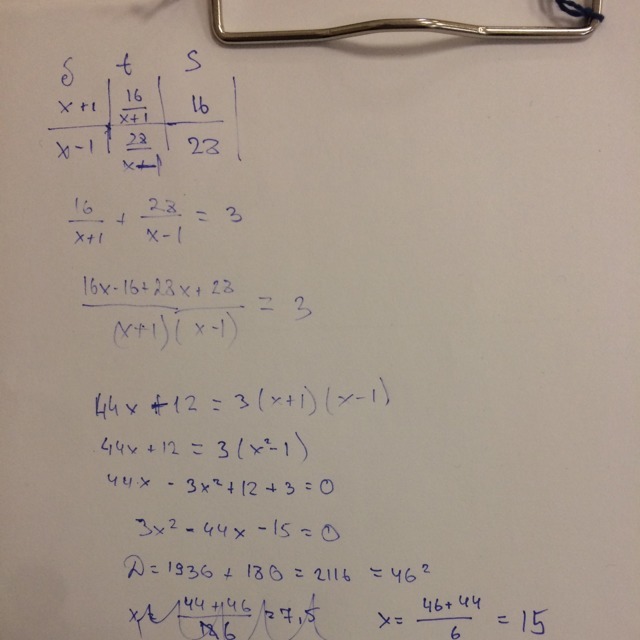 S t S
x+1 | 16/(x+1) | 16
x-1 | 28/(x-1) | 28
16/(x+1) + 28/(x-1) = 3
(16x-16+28x+28)/((x+1)(x-1)) = 3
44x+12 = 3(x+1)(x-1)
44x+12 = 3(x²-1)
44x - 3x²+12+3=0
3x²-44x-15=0
D=1936+180=2116=46²
x= (46+44)/6 = 15